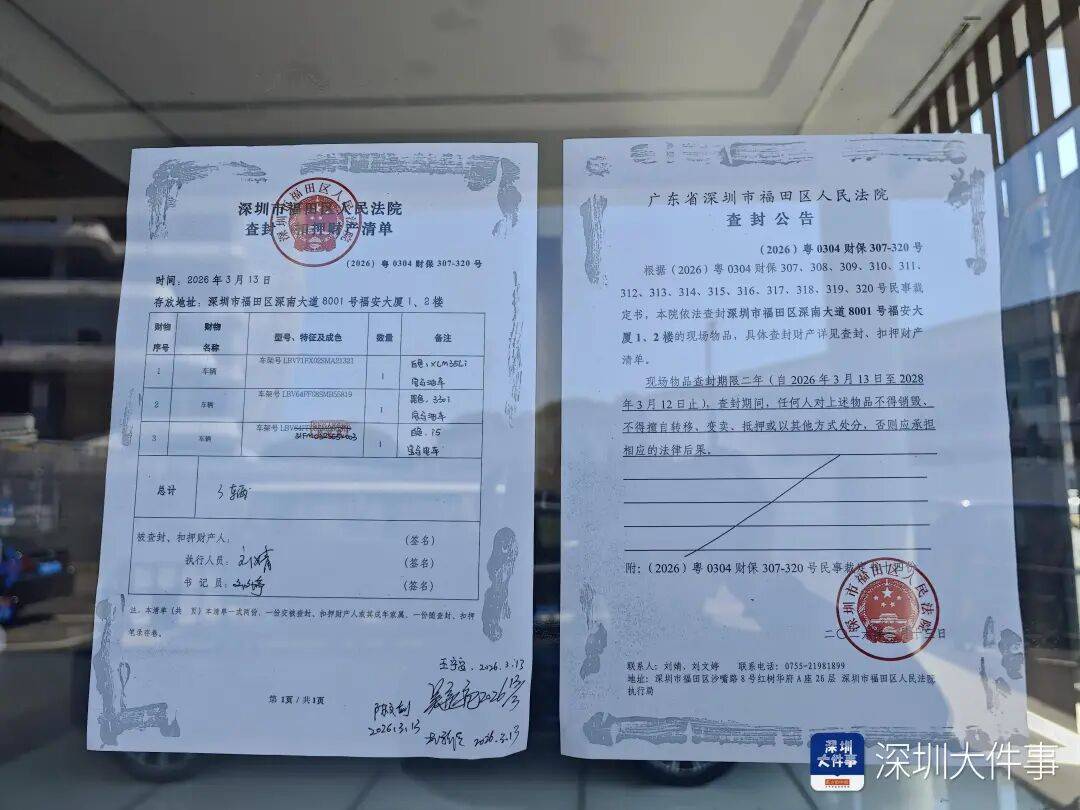 深圳市福田区人民法院
查封、扣押财产清单
(2026)粤0304财保307-320号
时间：2026年3月13日
存放地址：深圳市福田区深南大道8001号福安大厦1、2楼
财物序号 财物名称 型号、特征及成色 数量 备注
1 车辆 车架号LBV71FX02SMA21321 1
2 车辆 车架号 1
3 车辆 车架号 1 白色，i5
总计 3辆
被查封、扣押财产人： (签名)
执行人员： (签名)
书记员： (签名)
注：本清单（共 页）本清单一式两份，一份交被查封、扣押财产人或其成年家属，一份随查封、扣押
笔录存卷。
2026.3.13
2026.3.13
2026.3.13
第1页/共1页
广东省深圳市福田区人民法院
查封公告
(2026)粤0304财保307-320号
根据(2026)粤0304财保307、308、309、310、311、
312、313、314、315、316、317、318、319、320号民事裁
定书，本院依法查封深圳市福田区深南大道8001号福安大
厦1、2楼的现场物品，具体查封财产详见查封、扣押财产
清单。
现场物品查封期限二年（自2026年3月13日至2028
年3月12日止），查封期间，任何人对上述物品不得销毁、
不得擅自转移、变卖、抵押或以其他方式处分，否则应承担
相应的法律后果。
附：(2026)粤0304财保307-320号民事裁定书十四份
深圳市福田区人民法院
联系人：刘婧、刘文婷 联系电话：0755-21981899
地址：深圳市福田区沙嘴路8号红树华府A座26层 深圳市福田区人民法院
执行局
深圳大件事
深圳大件事